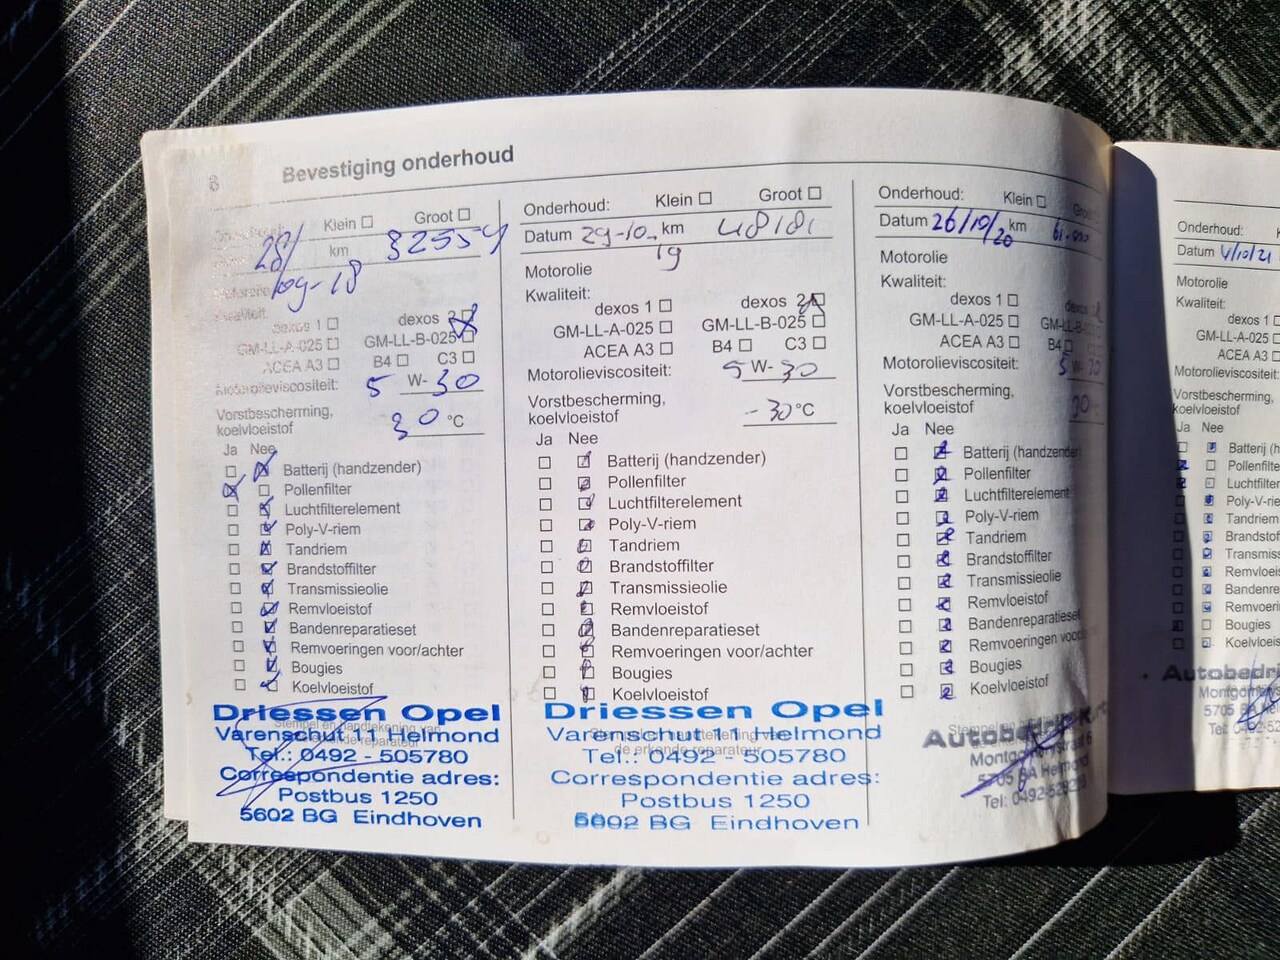 8 Bevestiging onderhoud
Klein Groot
28/ km 32554
09-18
Motorolie
Kwaliteit:
dexos 1 dexos 2
GM-LL-A-025 GM-LL-B-025
ACEA A3 B4 C3
Motorolieviscositeit: 5 W- 30
Vorstbescherming,
koelvloeistof 30 °C
Ja Nee
Batterij (handzender)
Pollenfilter
Luchtfilterelement
Poly-V-riem
Tandriem
Brandstoffilter
Transmissieolie
Remvloeistof
Bandenreparatieset
Remvoeringen voor/achter
Bougies
Koelvloeistof
Driessen Opel
Varenschut 11 Helmond
Tel.: 0492 - 505780
Correspondentie adres:
Postbus 1250
5602 BG Eindhoven
Onderhoud: Klein Groot
Datum 29-10- km 48181
19
Motorolie
Kwaliteit:
dexos 1 dexos 2
GM-LL-A-025 GM-LL-B-025
ACEA A3 B4 C3
Motorolieviscositeit: 5 W- 30
Vorstbescherming,
koelvloeistof -30 °C
Ja Nee
Batterij (handzender)
Pollenfilter
Luchtfilterelement
Poly-V-riem
Tandriem
Brandstoffilter
Transmissieolie
Remvloeistof
Bandenreparatieset
Remvoeringen voor/achter
Bougies
Koelvloeistof
Stempel en handtekening van
de erkende reparateur
Driessen Opel
Varenschut 11 Helmond
Tel.: 0492 - 505780
Correspondentie adres:
Postbus 1250
5602 BG Eindhoven
Onderhoud: Klein Groot
Datum 26/10/20 km
Motorolie
Kwaliteit:
dexos 1
GM-LL-A-025 GM-LL-B
ACEA A3 B4
Motorolieviscositeit: 5 W- 30
Vorstbescherming,
koelvloeistof
Ja Nee
Batterij (handzender)
Pollenfilter
Luchtfilterelement
Poly-V-riem
Tandriem
Brandstoffilter
Transmissieolie
Remvloeistof
Bandenreparatieset
Remvoeringen
Bougies
Koelvloeistof
Tel: 0492-
Onderhoud:
Datum 4/10/21
Motorolie
Kwaliteit:
dexos 1
GM-LL-A-025
ACEA A3
Motorolieviscositeit:
Vorstbescherming,
koelvloeistof
Ja Nee
Batterij (h
Pollenfilte
Luchtfilter
Poly-V-rie
Tandriem
Brandstof
Transmiss
Remvloeis
Bandenre
Remvoeri
Bougies
Koelvloeis